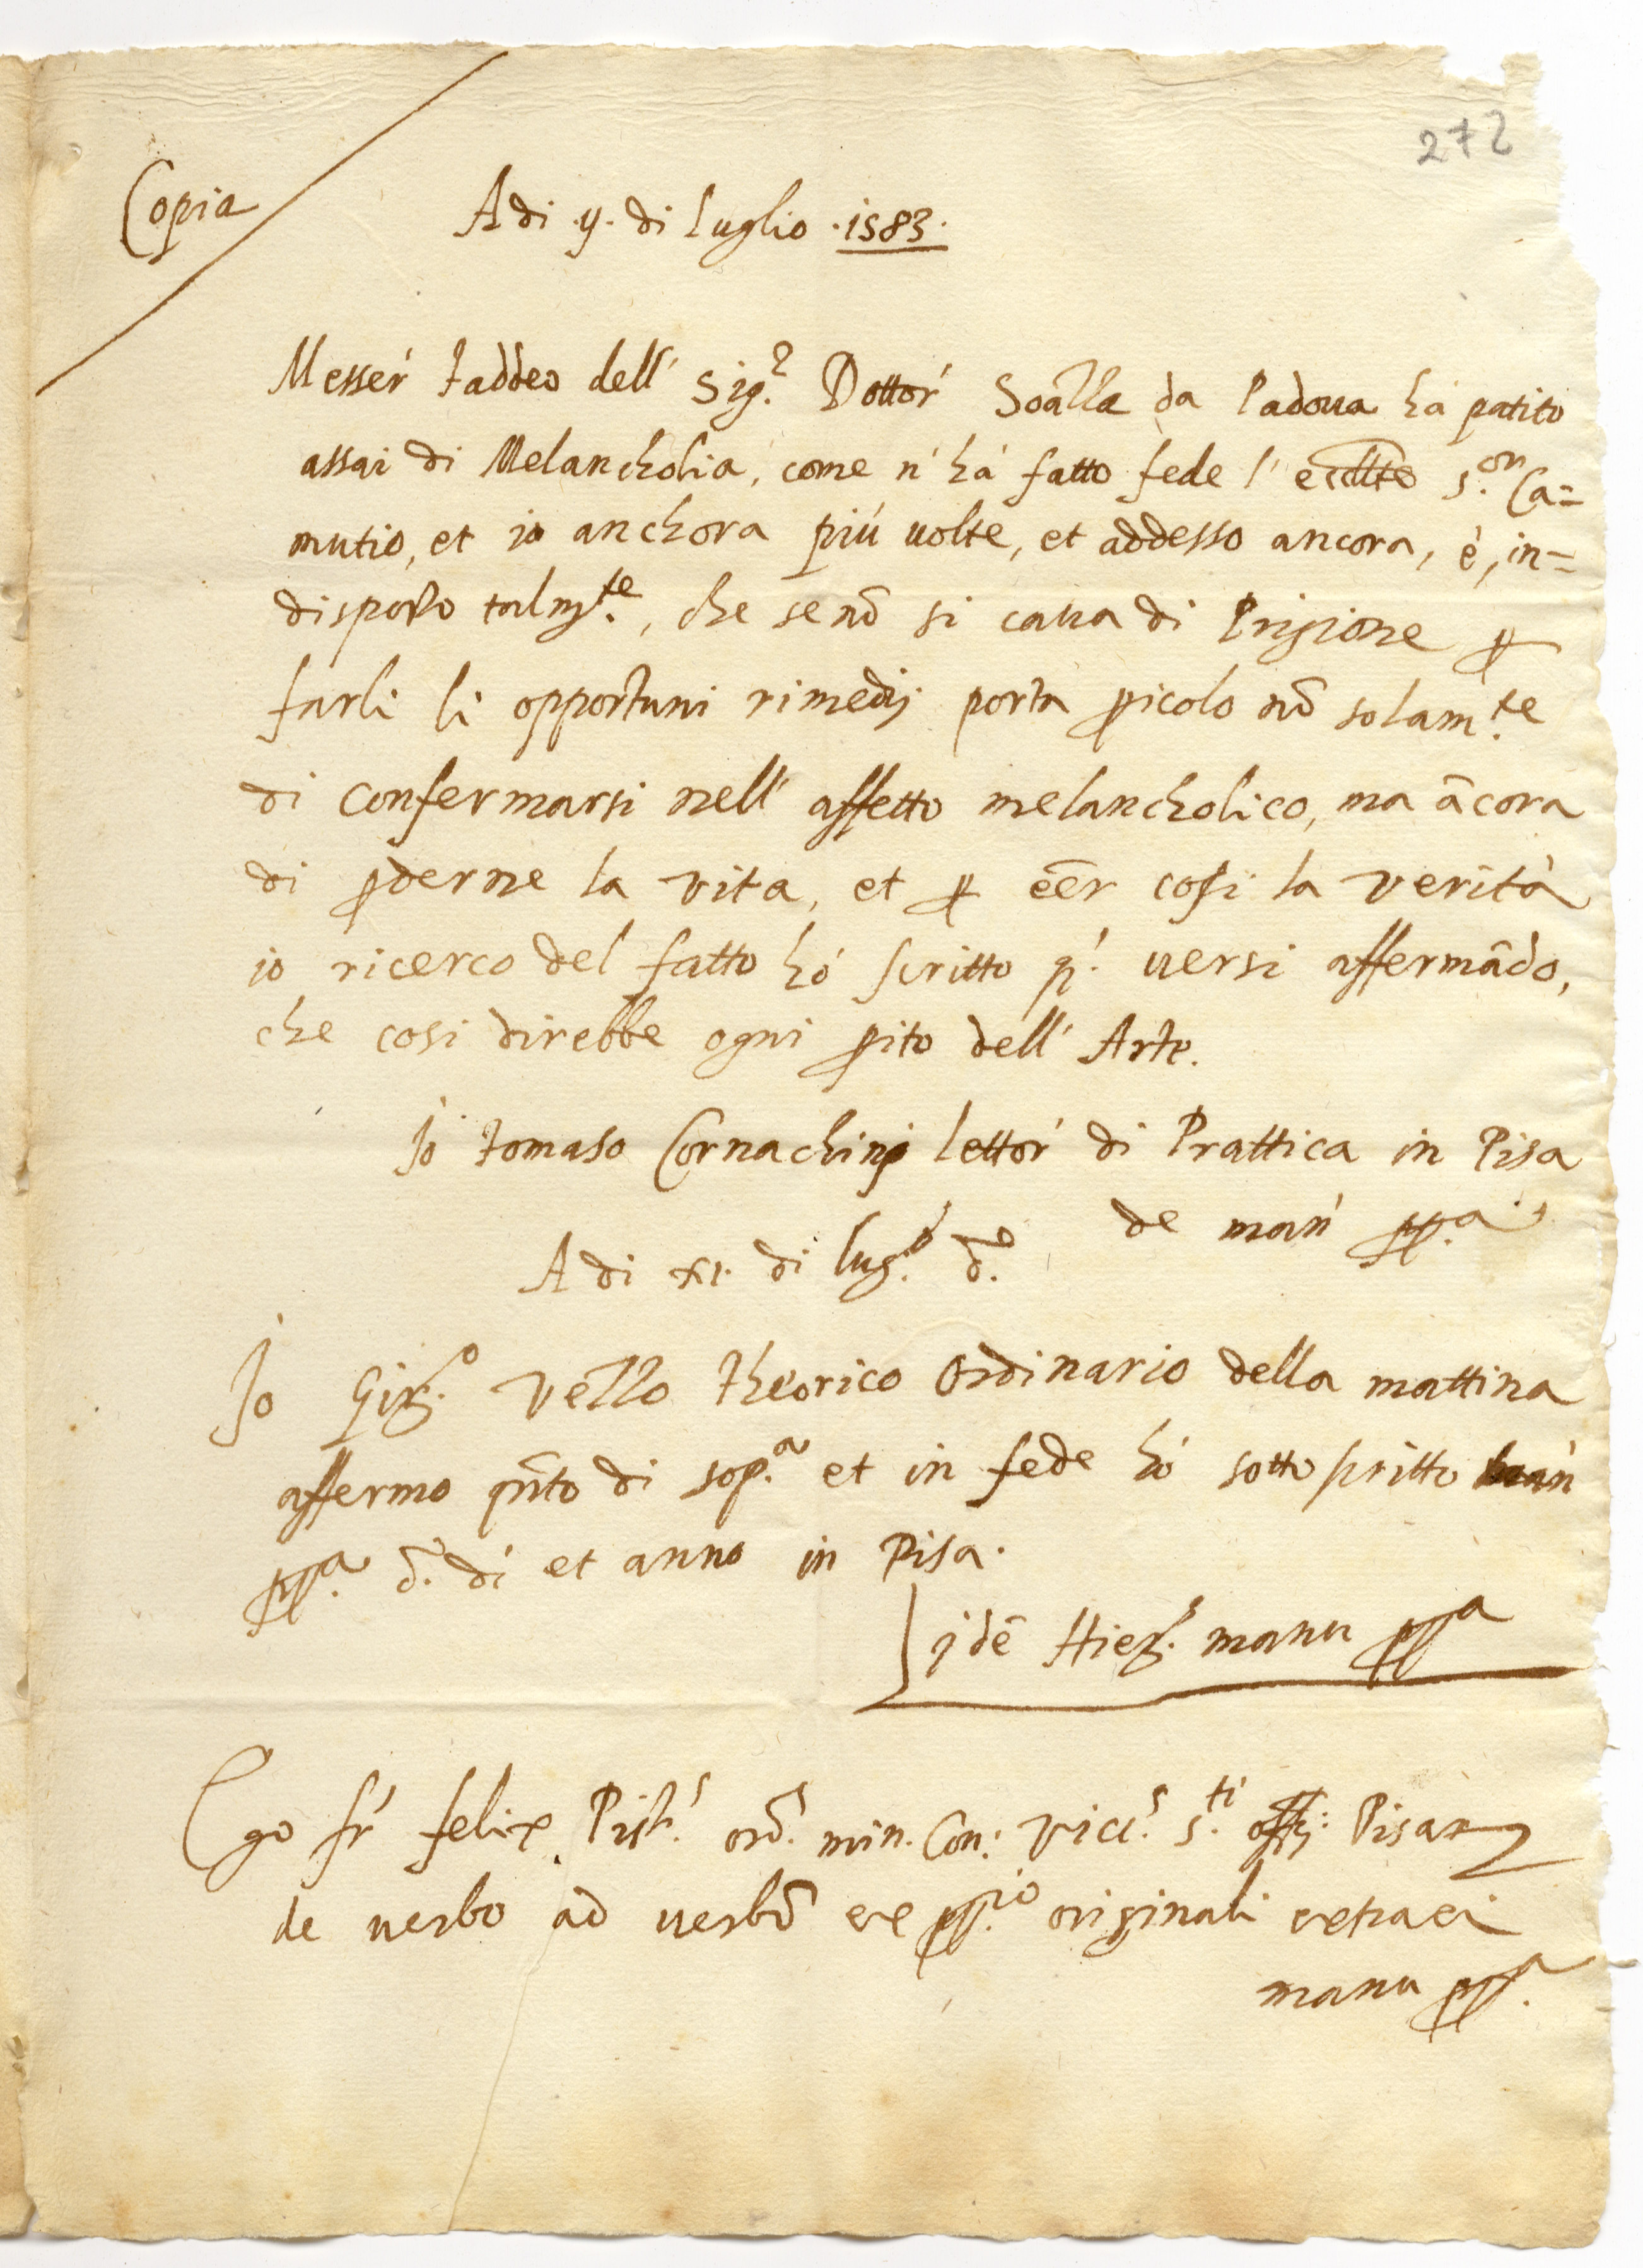 272
Copia
Adi .9. di luglio .1583.
Messer' Taddeo dell' Sig.r Dottor' Scalla da Padoua há patito
assai di Melancholia, come n' há fatto fede l' ecc.llte s.or Ca=
mutio, et io anchora piú uolte, et addesso ancora, è, in=
disposto talm.te, che se nõ si caua di Prigione p
farli li opportuni rimedij porta picolo nõ solam.te
di confermarsi nell' affetto melancholico, ma ãcora
di pderne la vita, et p eẽr cosi la verità
io ricerco del fatto hó scritto q.' uersi affermãdo,
che cosi direbbe ogni pito dell' Arte.
Io Tomaso Cornachinj lettor' di Prattica in Pisa
de man' pp.a
Adi xi. di lug.o d.o
Io Gir.o Vello Theorico ordinario della mattina
affermo qñto di sop.a et in fede hó sottoscritto man'
pp.a d. di et anno in Pisa.
idẽ Hier.s manu pp.a
Ego fr' felix Pist.' ord.s min. Con: Vic.s s.ti offij: Pisar
de uerbo ad uerbũ ex pp.io originali extraxi
manu pp.a